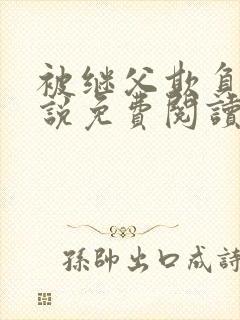 被继父欺負
說免費閱讀
孫帥出口成詩